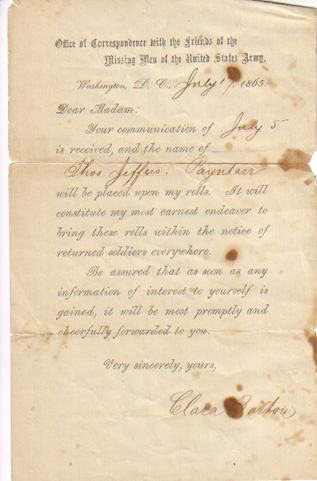 Office of Correspondence with the Friends of the
Missing Men of the United States Army,
Washington, D. C., July 17, 1865
Dear Madam:
Your communication of July 5
is received, and the name of
Thos Jeffers.
will be placed upon my rolls. It will
constitute my most earnest endeavor to
bring these rolls within the notice of
returned soldiers everywhere.
Be assured that as soon as any
information of interest to yourself is
gained, it will be most promptly and
cheerfully forwarded to you.
Very sincerely, yours,
Clara Barton